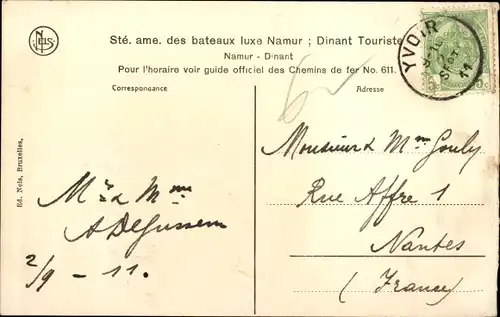 NELS
Sté. ame. des bateaux luxe Namur ; Dinant Touriste
Namur - Dinant
Pour l'horaire voir guide officiel des Chemins de fer No. 611.
Correspondance
Adresse
YVOIR
11
5c
5c
Ed. Nels, Bruxelles.
Monsieur & Mme Gouly
Rue Affre 1
Nantes
(France)
Mr & Mme
A Degussem
2/9 - 11.